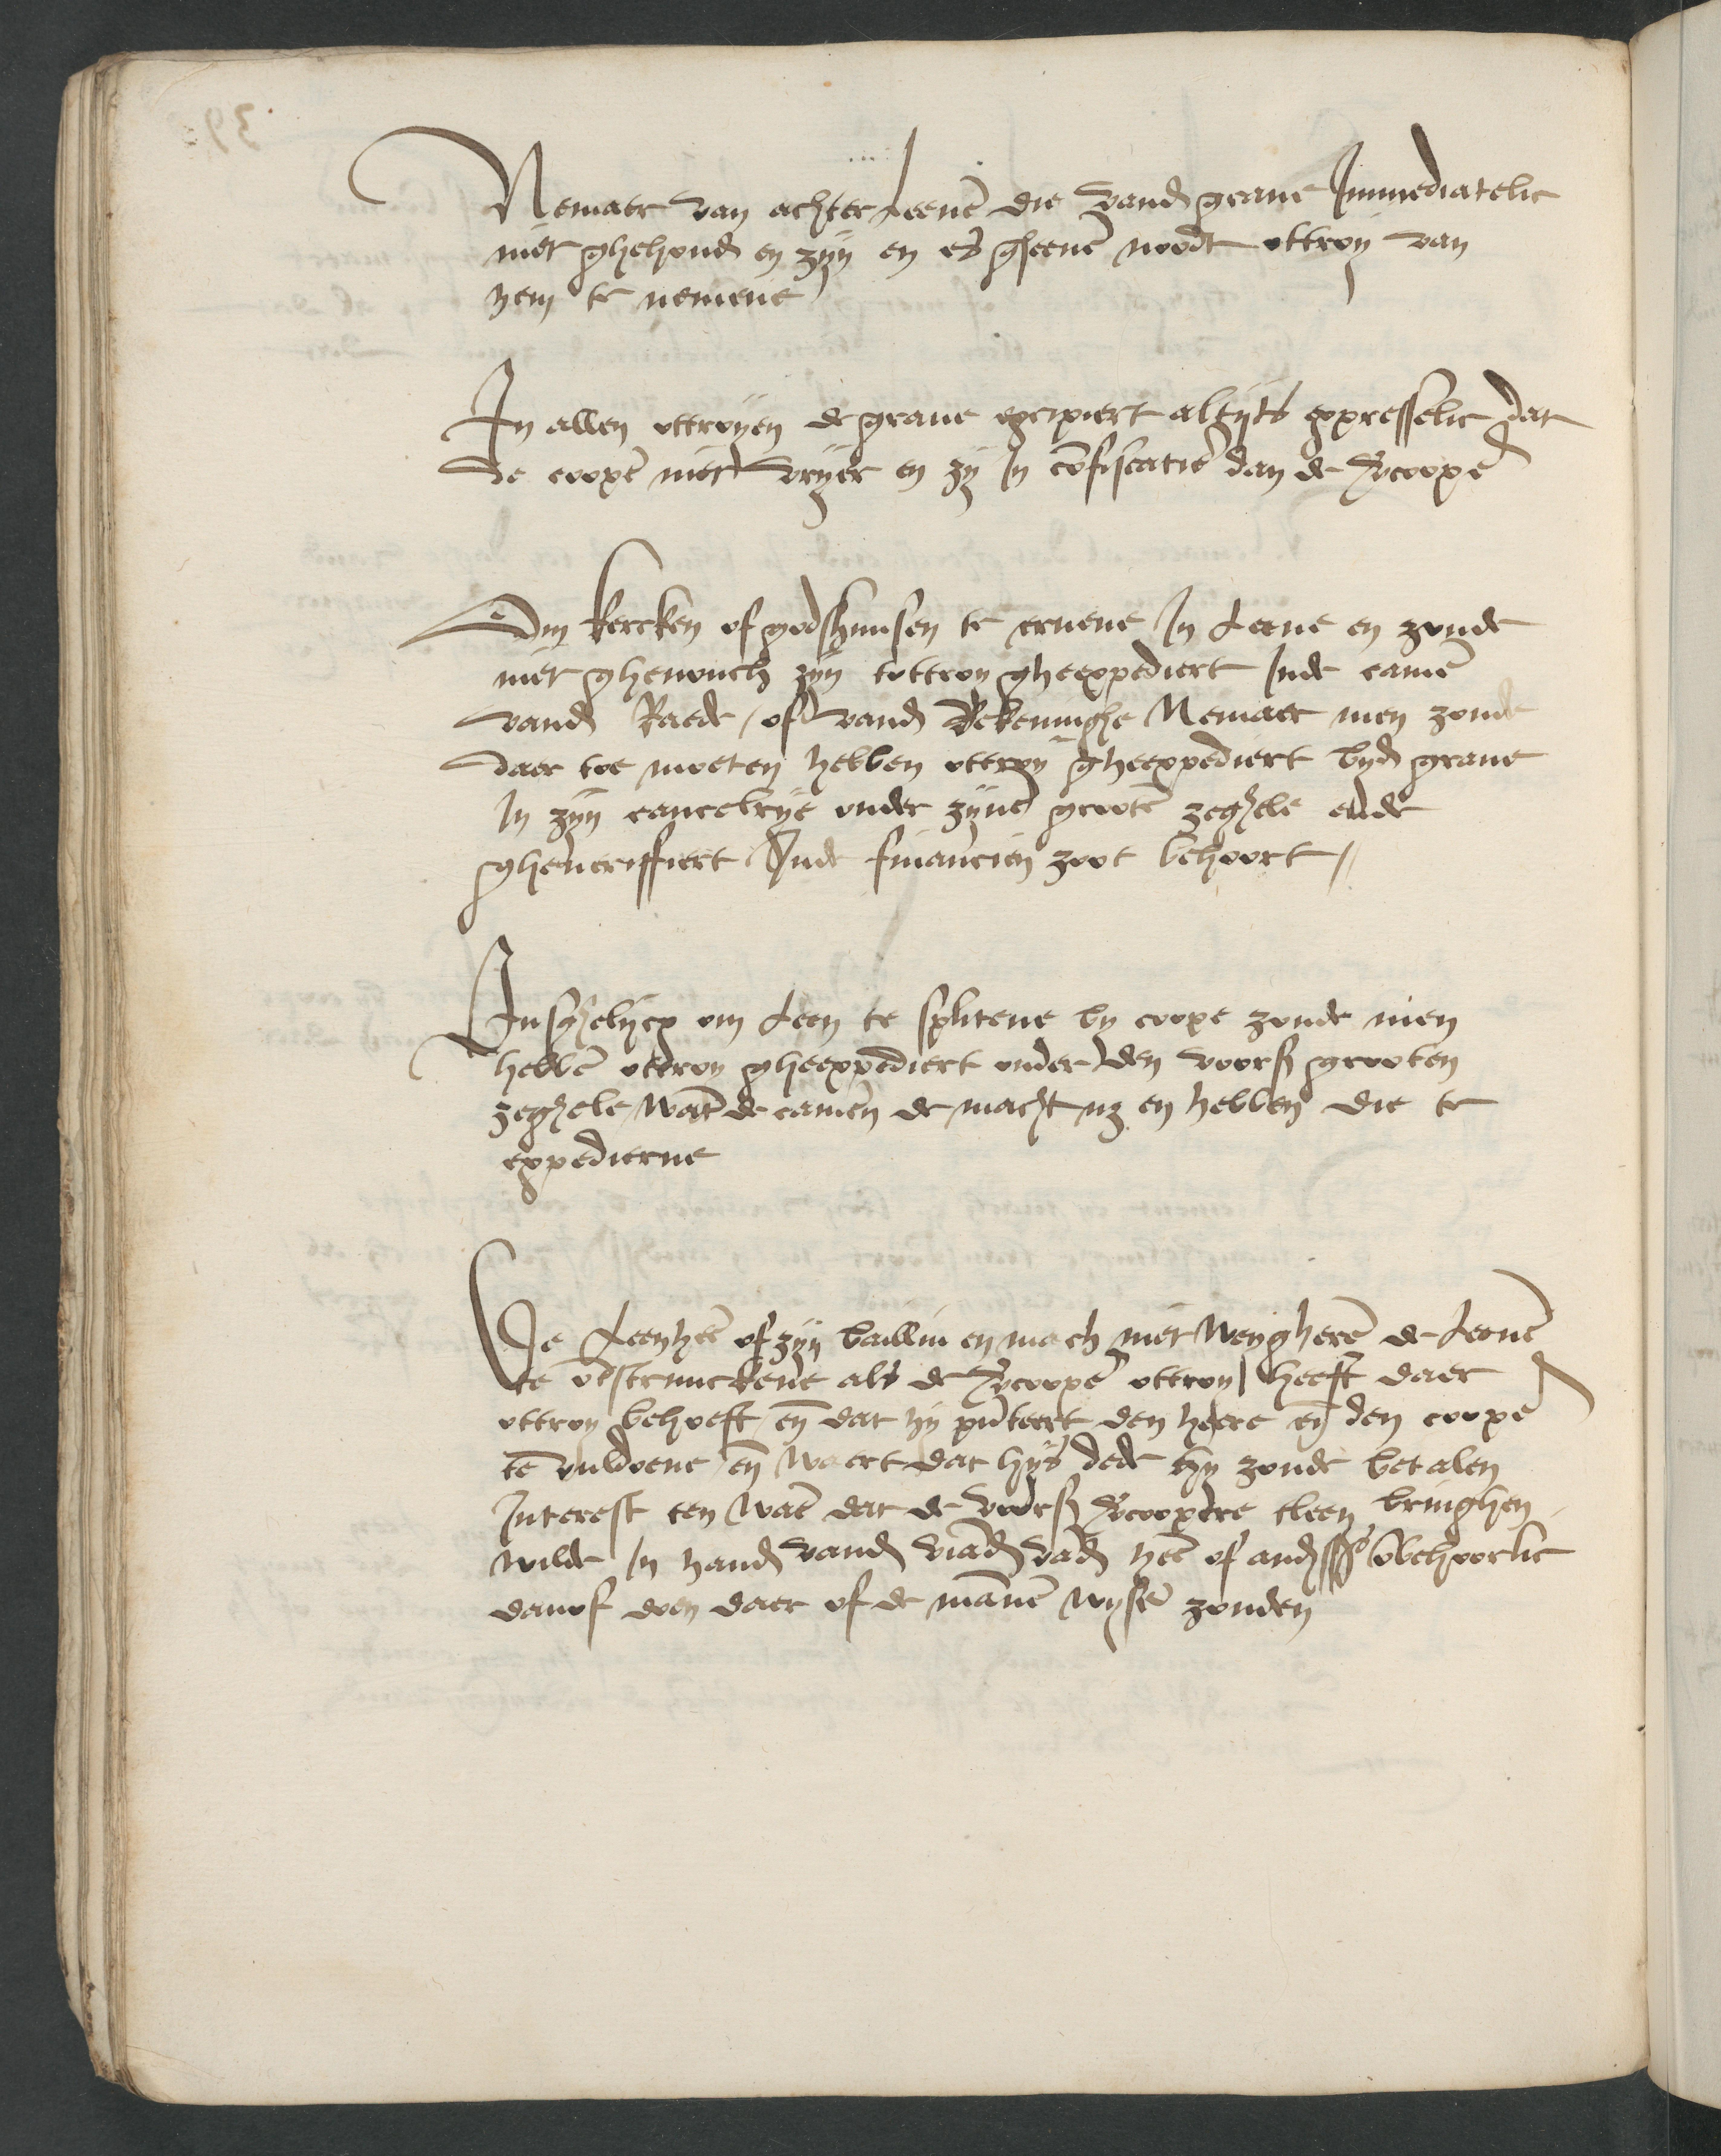 Nemaer van achter leenē die vand grave Immediatelic
niet ghehoud en zyn en es gheenē noodt ottroy van
hem te nemene
In allen ottroyen de grave excipiert altyts expresselic dat
de coopē niet vryer en zy In cōfiscatiē dan de vcoopē
Om kercken of godshuusen te ervene In Leene en zoude
niet ghenouch zyn tottroy gheexpediert Inde camē
vand Raede / of vand Rekeninghe Nemaer men zoude
daer toe moeten hebben ottroy gheexpediert byd grave
In zyn cancelrye onder zynē grootē zeghele ende
gheveriffiert Inde financien zoot behoort //
Insghelycx om Leen te splitene by coope zoude men
hebbē ottroy gheexpediert onder den voors grooten
zeghele / wāt de camērn de macht nz en hebben die te
expedierne
De Leenheē of zyn bailliu en mach niet weygherē de Leenē
te ōtstruuckene als de vcoopē ottroy heeft daer
ottroy behoeft / eñ dat hy pñteert den heere eñ den coopē
te vuldoene / eñ waert dat hys dede hy zoude betalen
Interest ten waē dat de voors vcoopere tleen bringhen
wilde In hand vand viād vād heē of and onbehoorlic
danof doen daer of de mānē wysē zouden
39